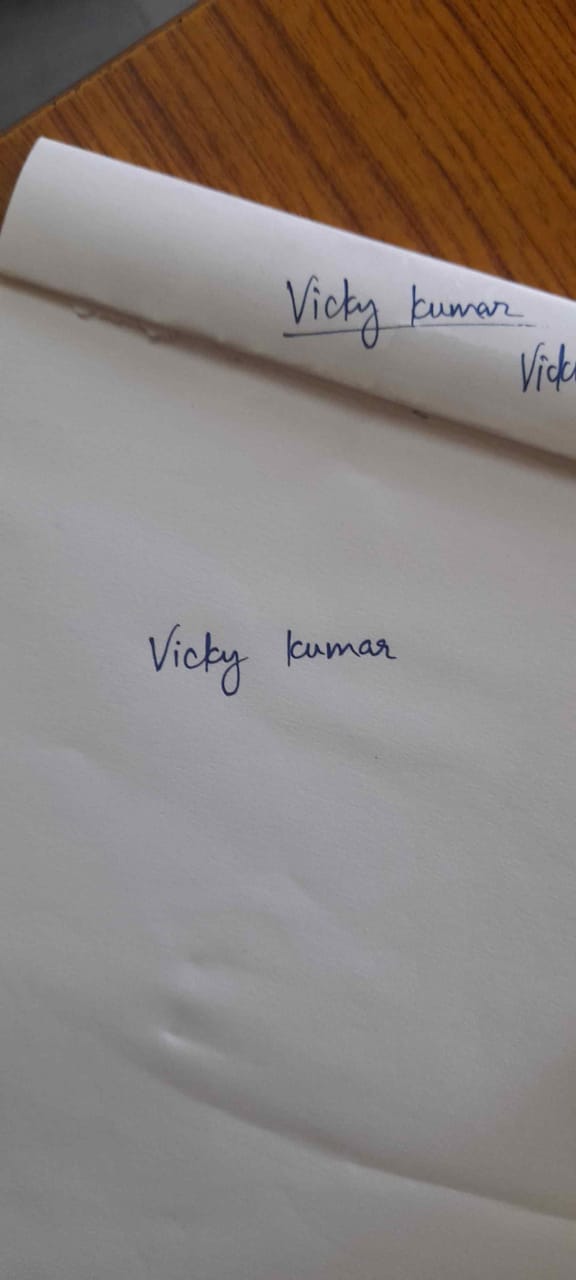 Vicky kumar
Vicky kumar